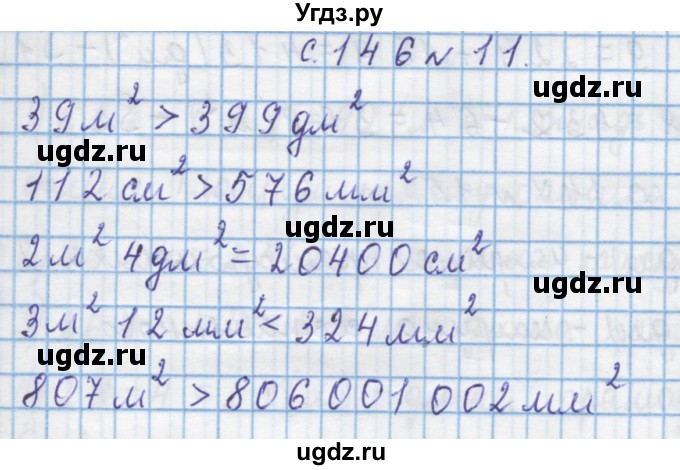 Угдз.ру
с.146 № 11.
39 м² > 399 дм²
ugdz.ru ugdz.ru
112 см² > 576 мм²
ugdz.ru
2м² 4дм² = 20400 см²
ugdz.ru ugdz.ru
3м² 12 мм² < 324 мм²
ugdz.ru
807 м² > 806 001 002 мм²
ugdz.ru ugdz.ru